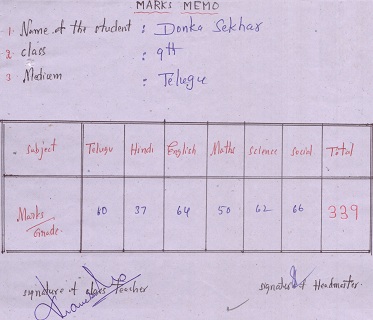 MARKS MEMO
1. Name of the student : Donka Sekhar
2 class : 9th
3 Medium : Telugu
Subject Telugu Hindi English Maths Science Social Total
Marks/Grade. 60 37 64 50 62 66 339
signature of class Teacher signature of Headmaster.